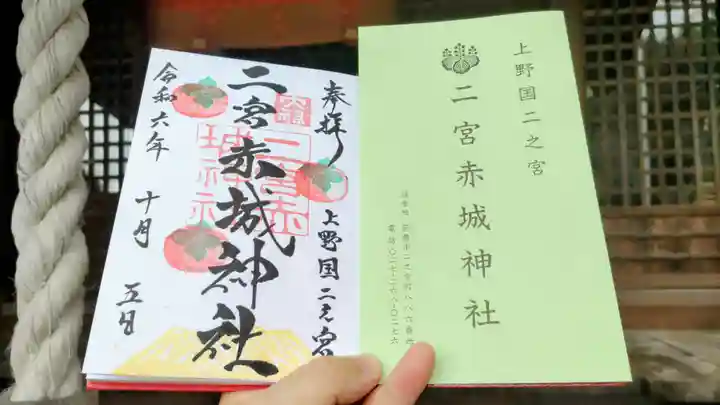 奉拝
上野国二之宮
二宮赤城神社
二宮赤
城神社
令和六年
十月
五日
上野国二之宮
二宮赤城神社